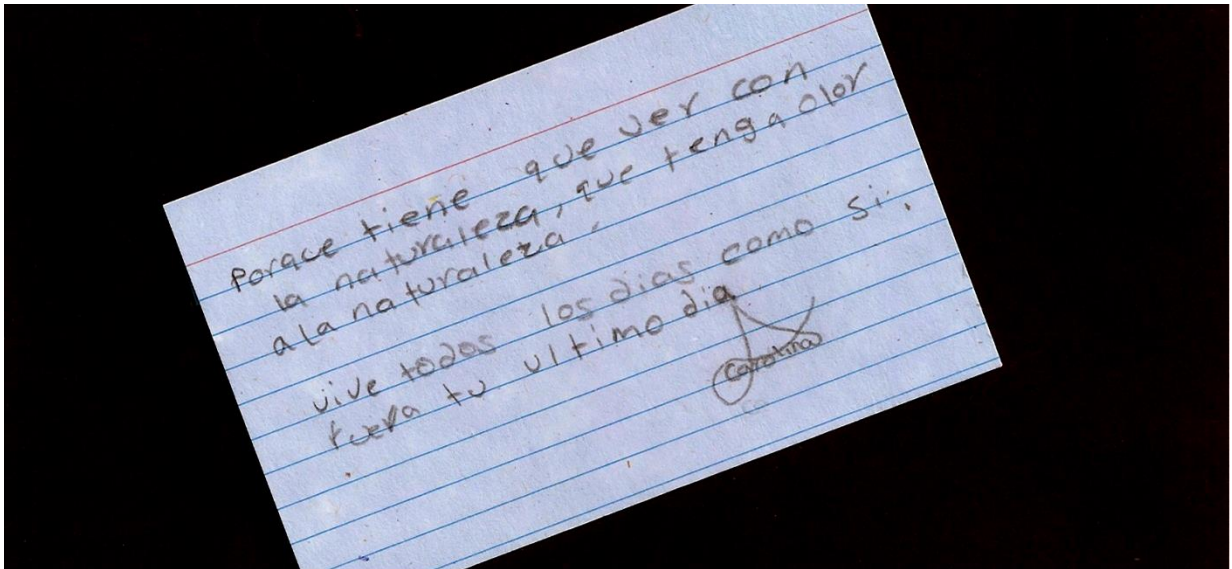 Porque tiene que ver con
la naturaleza, que tenga olor
a la naturaleza,
vive todos los dias como si.
fuera tu ultimo dia
Carolina